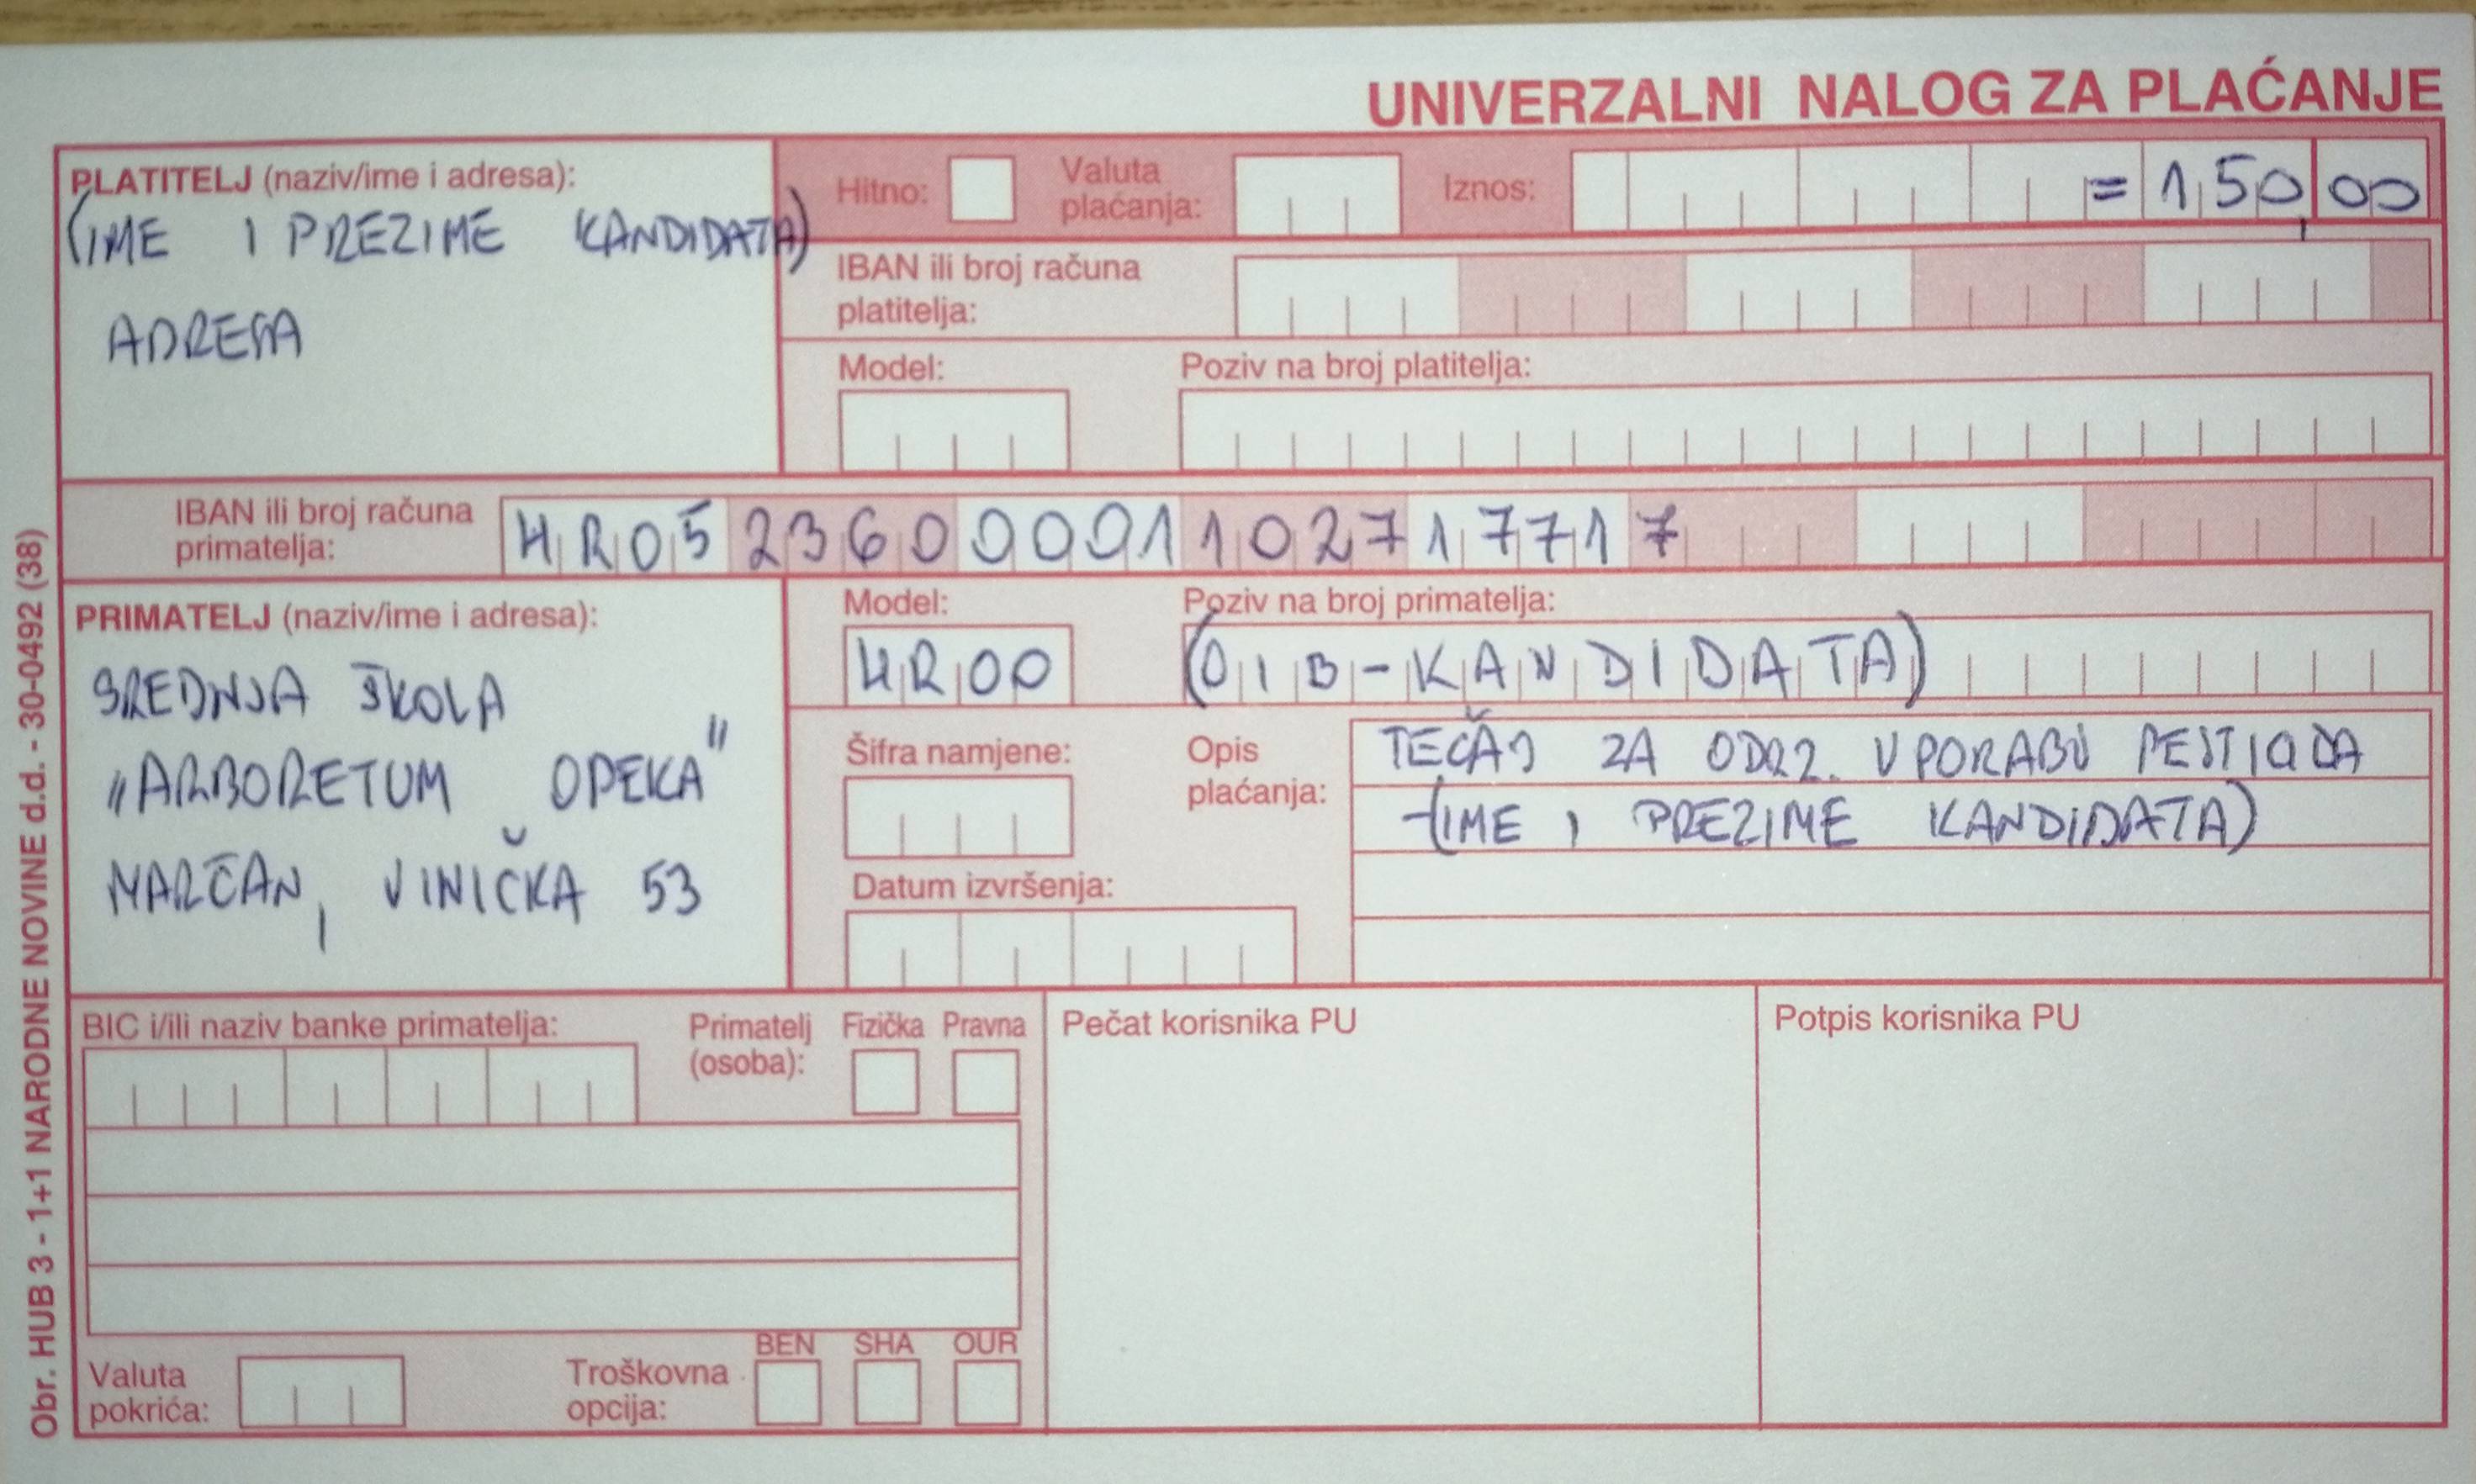 UNIVERZALNI NALOG ZA PLAĆANJE
PLATITELJ (naziv/ime i adresa):
(IME I PREZIME KANDIDATA)
ADRESA
Hitno:
Valuta plaćanja:
Iznos: =150,00
IBAN ili broj računa platitelja:
Model:
Poziv na broj platitelja:
IBAN ili broj računa primatelja: HR0523600001102717717
PRIMATELJ (naziv/ime i adresa):
SREDNJA ŠKOLA
"ARBORETUM OPEKA"
MARČAN, VINIČKA 53
Model:
HR00
Poziv na broj primatelja:
(OIB-KANDIDATA)
Šifra namjene:
Opis plaćanja:
TEČAJ ZA ODRŽ. UPORABU PESTICIDA
-(IME I PREZIME KANDIDATA)
Datum izvršenja:
BIC i/ili naziv banke primatelja:
Primatelj (osoba):
Fizička
Pravna
Pečat korisnika PU
Potpis korisnika PU
Valuta pokrića:
Troškovna opcija:
BEN
SHA
OUR
Obr. HUB 3 - 1+1 NARODNE NOVINE d.d. - 30-0492 (38)